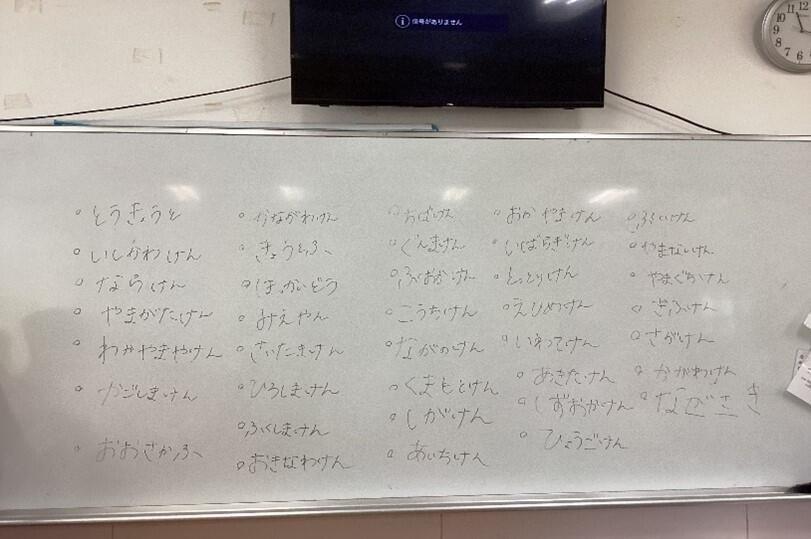 信号がありません
とうきょうと
いしかわけん
ならけん
やまがたけん
わかやまやけん
かごしまけん
おおさかふ
かながわけん
きょうとふ
ほっかいどう
みえやん
さいたまけん
ひろしまけん
ふくしまけん
おきなわけん
ちばけん
ぐんまけん
ふおかけん
こうちけん
ながのけん
くまもとけん
しがけん
あいちけん
おかやまけん
いばらぎけん
とっとりけん
えひめけん
いわてけん
あきたけん
しずおかけん
ひょうごけん
ふくいけん
やまないけん
やまぐちけん
ぎふけん
さがけん
かがわけん
ながさき